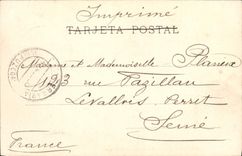 Imprimé
TARJETA POSTAL
Madame et Mademoiselle Planeix
93 rue Vazillau
Levallois Perret
Seine
France